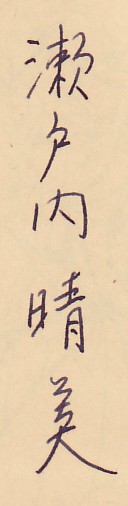 瀬戸内晴美